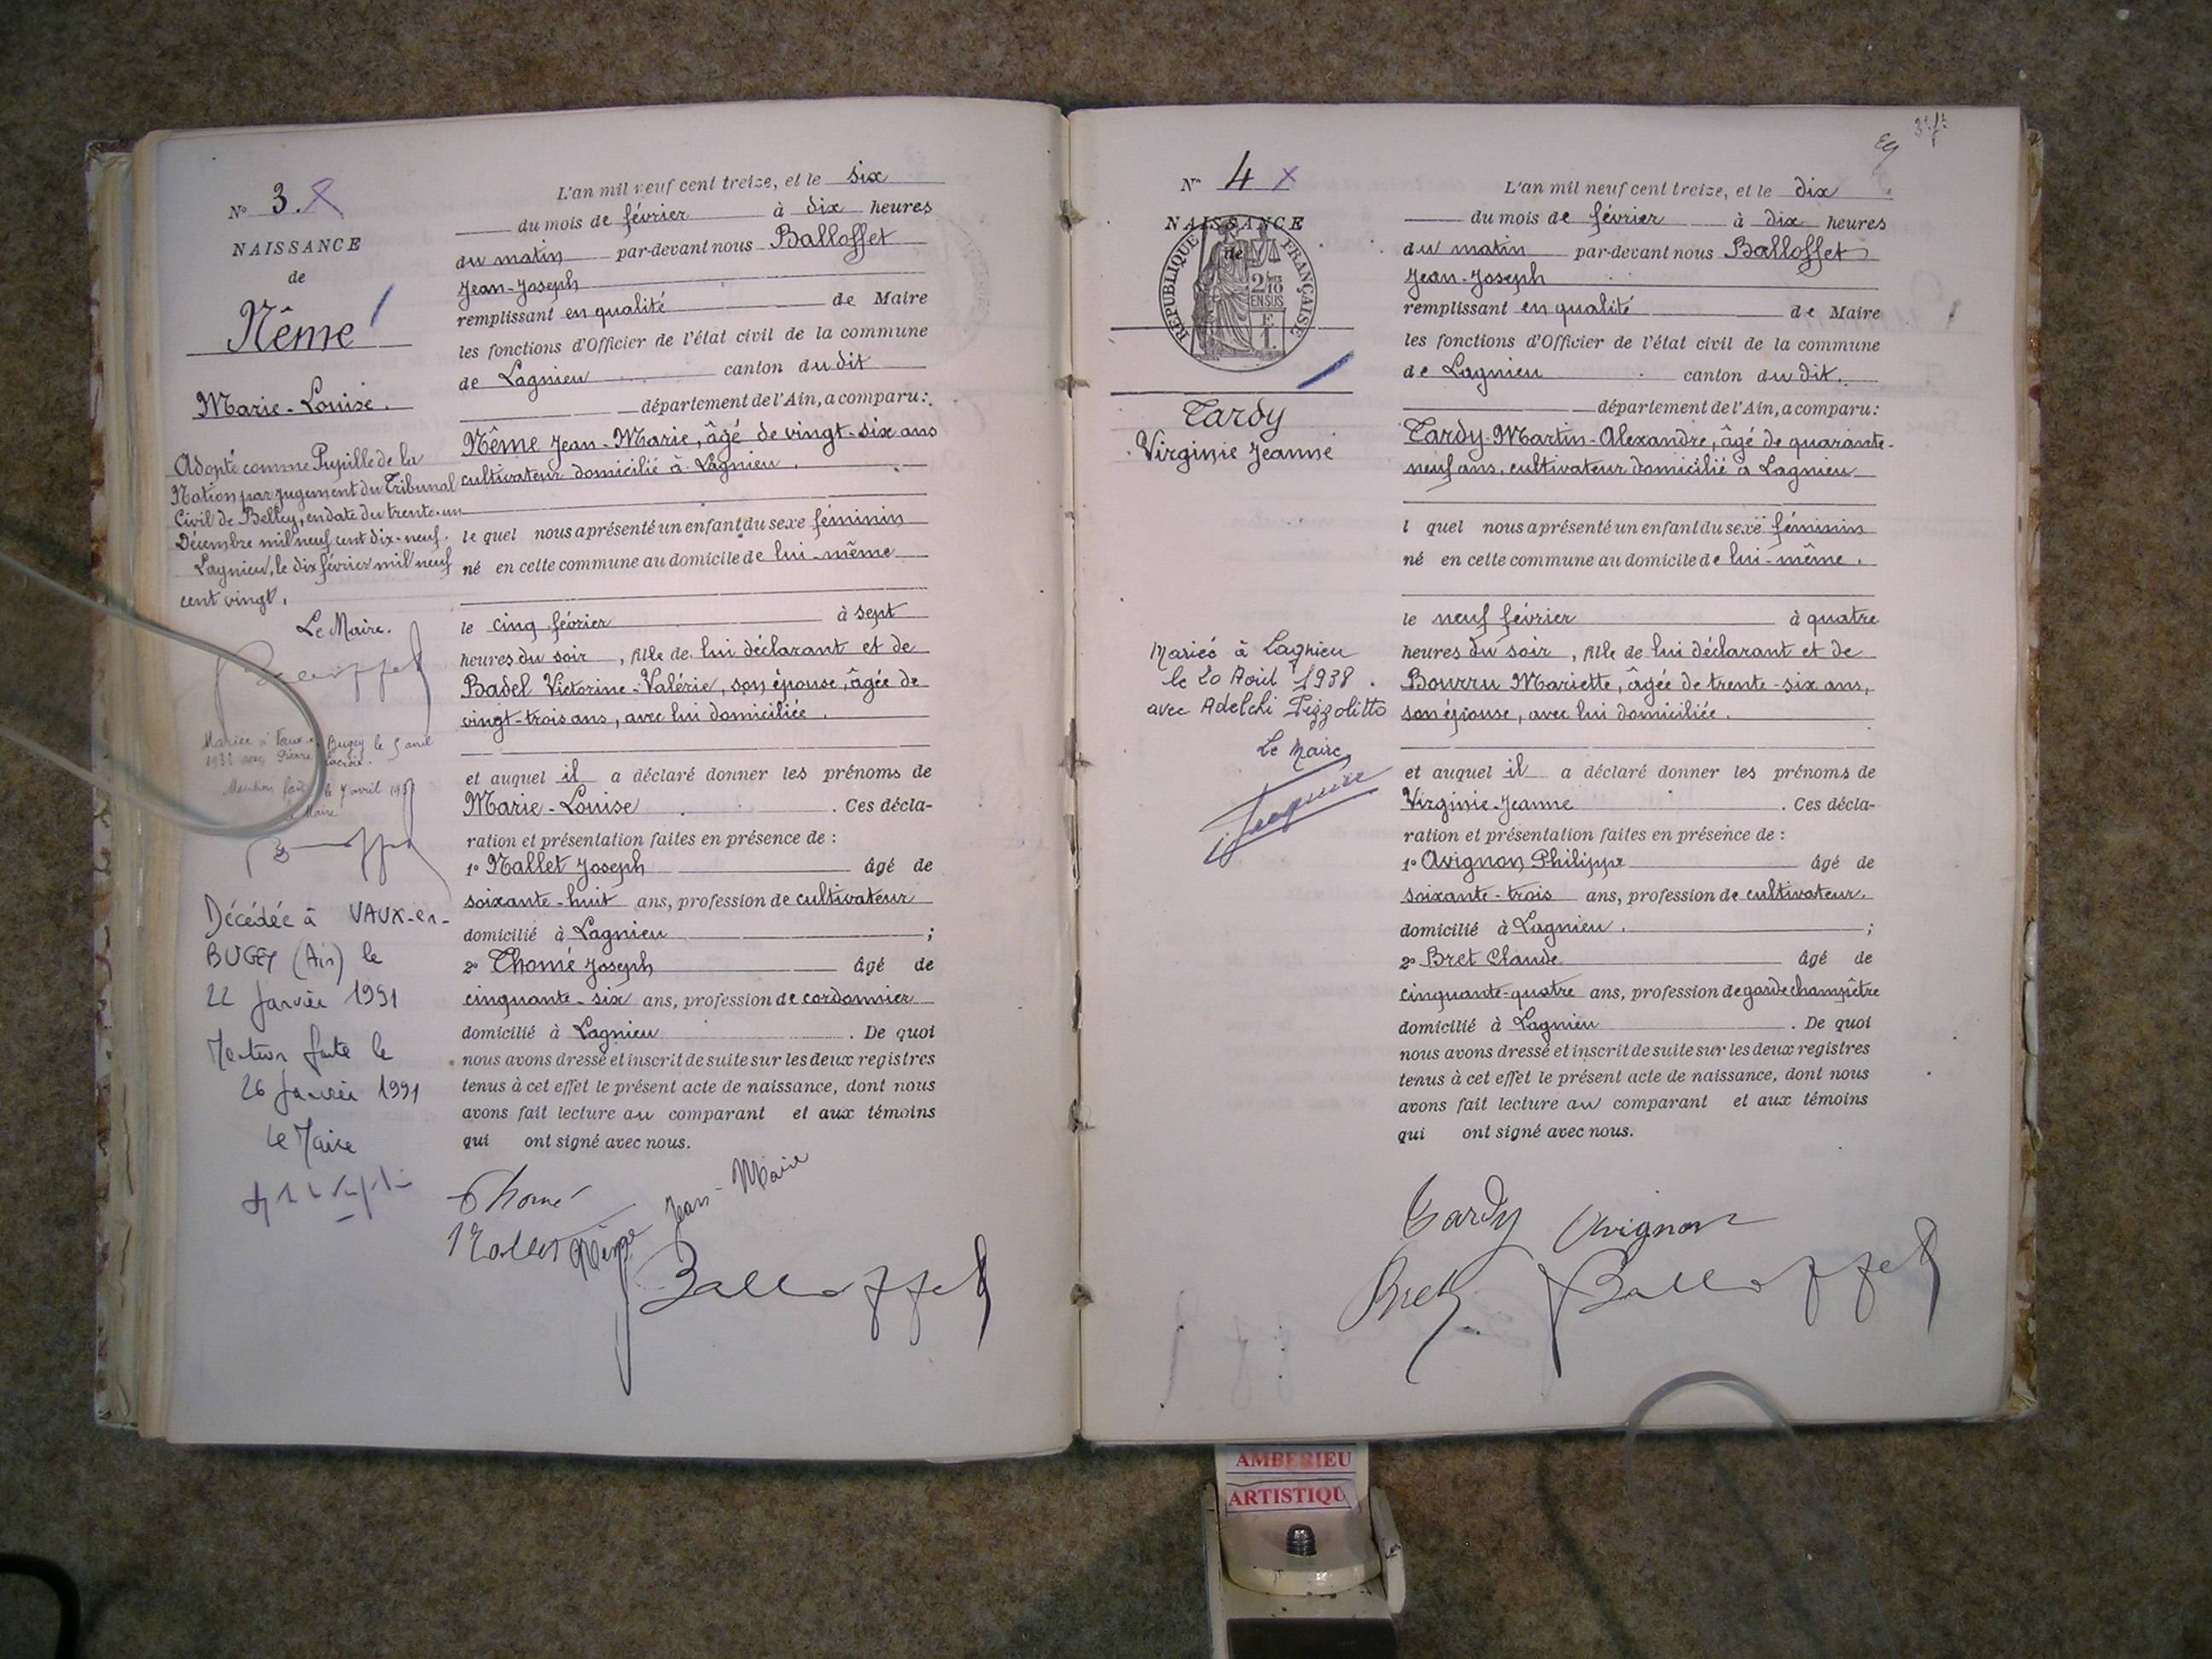 N° 3.
NAISSANCE
de
Nême
Marie-Louise.
Adopté comme Pupille de la
Nation par jugement du Tribunal
Civil de Belley, en date du trente-un
Décembre mil neuf cent dix-neuf.
Lagnieu, le dix février mil neuf
cent vingt.
Le Maire.
Balloffet
Mariée à Vaux-en-Bugey le 5 avril
avec Pierre Lacroix.
Mention faite le 7 avril
Le Maire
Balloffet
Décédée à VAUX-en-
BUGEY (Ain) le
22 Janvier 1991
Mention faite le
26 Janvier 1991
Le Maire
L'an mil neuf cent treize, et le six
du mois de février à dix heures
du matin par-devant nous Balloffet
Jean-Joseph
remplissant en qualité de Maire
les fonctions d'Officier de l'état civil de la commune
de Lagnieu canton du dit
département de l'Ain, a comparu :
Nême Jean-Marie, âgé de vingt-six ans
cultivateur domicilié à Lagnieu.
le quel nous a présenté un enfant du sexe féminin
né en cette commune au domicile de lui-même
le cinq février à sept
heures du soir, fille de lui déclarant et de
Badel Victorine-Valérie, son épouse, âgée de
vingt-trois ans, avec lui domiciliée.
et auquel il a déclaré donner les prénoms de
Marie-Louise. Ces décla-
ration et présentation faites en présence de :
1° Nallet Joseph âgé de
soixante-huit ans, profession de cultivateur
domicilié à Lagnieu ;
2° Thomé Joseph âgé de
cinquante-six ans, profession de cordonnier
domicilié à Lagnieu. De quoi
nous avons dressé et inscrit de suite sur les deux registres
tenus à cet effet le présent acte de naissance, dont nous
avons fait lecture au comparant et aux témoins
qui ont signé avec nous.
Thomé
Nallet Nême Jean-Marie
Balloffet
N° 4
NAISSANCE
de
RÉPUBLIQUE FRANÇAISE
2/10 EN SUS
Tardy
Virginie Jeanne
Mariée à Lagnieu
le 20 Août 1938.
avec Adelchi Pezzolitto
Le Maire
L'an mil neuf cent treize, et le dix
du mois de février à dix heures
du matin par-devant nous Balloffet
Jean-Joseph
remplissant en qualité de Maire
les fonctions d'Officier de l'état civil de la commune
de Lagnieu canton du dit.
département de l'Ain, a comparu :
Tardy Martin-Alexandre, âgé de quarante-
neuf ans, cultivateur domicilié à Lagnieu
l quel nous a présenté un enfant du sexe féminin
né en cette commune au domicile de lui-même.
le neuf février à quatre
heures du soir, fille de lui déclarant et de
Bourru Mariette, âgée de trente-six ans,
son épouse, avec lui domiciliée.
et auquel il a déclaré donner les prénoms de
Virginie-Jeanne. Ces décla-
ration et présentation faites en présence de :
1° Avignon Philippe âgé de
soixante-trois ans, profession de cultivateur.
domicilié à Lagnieu. ;
2° Bret Claude âgé de
cinquante-quatre ans, profession de garde champêtre
domicilié à Lagnieu. De quoi
nous avons dressé et inscrit de suite sur les deux registres
tenus à cet effet le présent acte de naissance, dont nous
avons fait lecture au comparant et aux témoins
qui ont signé avec nous.
Tardy Avignon
Bret Balloffet
AMBERIEU
ARTISTIQU